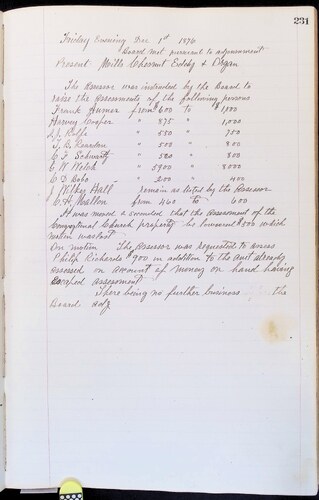 231
Friday Evening Dec 1st 1876
Board met pursuant to adjournment
Present Mills Chesnut Eddy &
The Assessor was instructed by the Board to
raise the Assessments of the following persons
Frank from $600 to $1,000
Harvey Cooper " 875 " 1,000
A.J. Rolfe " 550 " 750
T.B. Reardon " 500 " 800
C F Schwartz " 520 " 800
C W Welch " 5900 " 8000
C D " 200 " 400
J Wilkey Hall remain as listed by the Assessor
C.H. Mallon from 460 to 600
It was moved & seconded that the assessment of the
Congregational Church property be lowered $800 which
when was lost
On motion The Assessor was requested to assess
Philip Richards $900 in addition to the amt already
assessed on account of money on hand having
escaped assessment
There being no further business the
Board adj